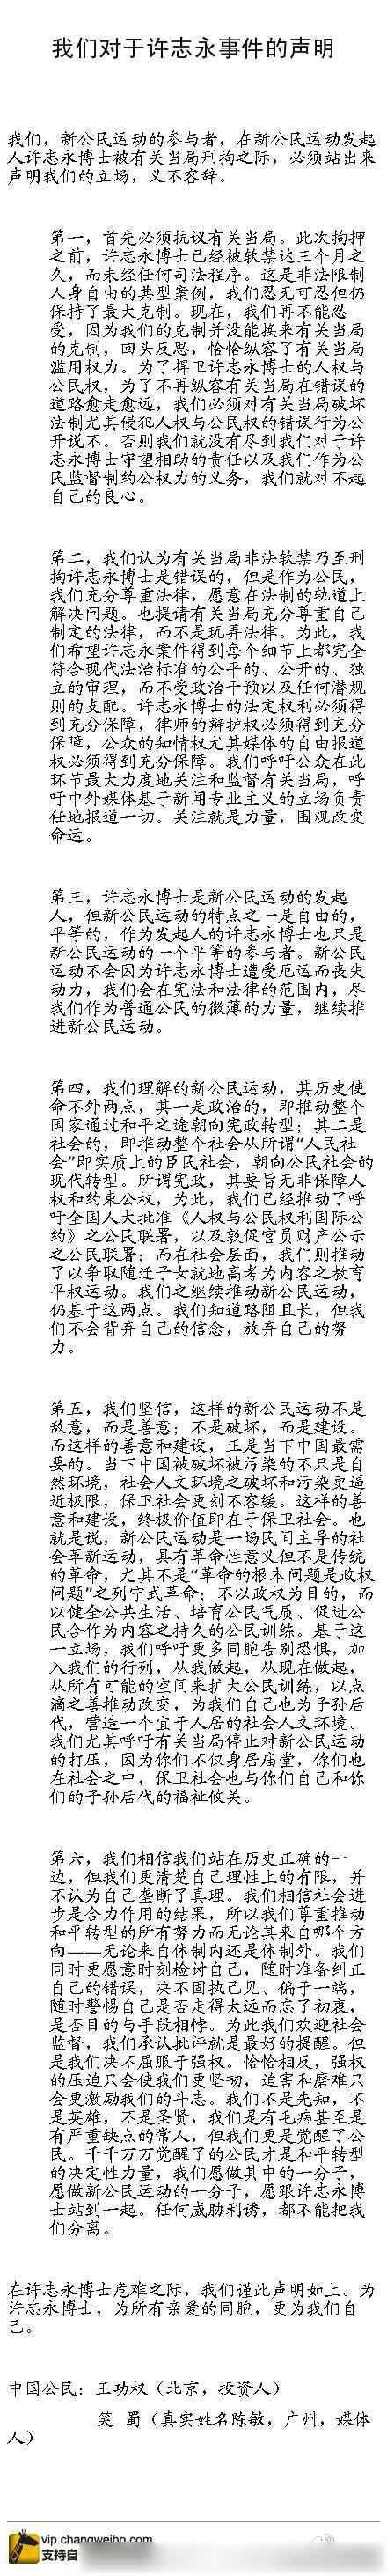 我们对于许志永事件的声明
我们，新公民运动的参与者，在新公民运动发起
人许志永博士被有关当局刑拘之际，必须站出来
声明我们的立场，义不容辞。
第一，首先必须抗议有关当局。此次拘押
之前，许志永博士已经被软禁达三个月之
久，而未经任何司法程序。这是非法限制
人身自由的典型案例，我们忍无可忍但仍
保持了最大克制。现在，我们再不能忍
受，因为我们的克制并没能换来有关当局
的克制，回头反思，恰恰纵容了有关当局
滥用权力。为了捍卫许志永博士的人权与
公民权，为了不再纵容有关当局在错误的
道路愈走愈远，我们必须对有关当局破坏
法制尤其侵犯人权与公民权的错误行为公
开说不。否则我们就没有尽到我们对于许
志永博士守望相助的责任以及我们作为公
民监督制约公权力的义务，我们就对不起
自己的良心。
第二，我们认为有关当局非法软禁乃至刑
拘许志永博士是错误的，但是作为公民，
我们充分尊重法律，愿意在法制的轨道上
解决问题。也提请有关当局充分尊重自己
制定的法律，而不是玩弄法律。为此，我
们希望许志永案件得到每个细节上都完全
符合现代法治标准的公平的、公开的、独
立的审理，而不受政治干预以及任何潜规
则的支配。许志永博士的法定权利必须得
到充分保障，律师的辩护权必须得到充分
保障，公众的知情权尤其媒体的自由报道
权必须得到充分保障。我们呼吁公众在此
环节最大力度地关注和监督有关当局，呼
吁中外媒体基于新闻专业主义的立场负责
任地报道一切。关注就是力量，围观改变
命运。
第三，许志永博士是新公民运动的发起
人，但新公民运动的特点之一是自由的，
平等的，作为发起人的许志永博士也只是
新公民运动的一个平等的参与者。新公民
运动不会因为许志永博士遭受厄运而丧失
动力，我们会在宪法和法律的范围内，尽
我们作为普通公民的微薄的力量，继续推
进新公民运动。
第四，我们理解的新公民运动，其历史使
命不外两点，其一是政治的，即推动整个
国家通过和平之途朝向宪政转型；其二是
社会的，即推动整个社会从所谓“人民社
会”即实质上的臣民社会，朝向公民社会的
现代转型。所谓宪政，其要旨无非保障人
权和约束公权，为此，我们已经推动了呼
吁全国人大批准《人权与公民权利国际公
约》之公民联署，以及敦促官员财产公示
之公民联署；而在社会层面，我们则推动
了以争取随迁子女就地高考为内容之教育
平权运动。我们之继续推动新公民运动，
仍基于这两点。我们知道路阻且长，但我
们不会背弃自己的信念，放弃自己的努
力。
第五，我们坚信，这样的新公民运动不是
敌意，而是善意；不是破坏，而是建设。
而这样的善意和建设，正是当下中国最需
要的。当下中国被破坏被污染的不只是自
然环境，社会人文环境之破坏和污染更逼
近极限，保卫社会更刻不容缓。这样的善
意和建设，终极价值即在于保卫社会。也
就是说，新公民运动是一场民间主导的社
会革新运动，具有革命性意义但不是传统
的革命，尤其不是“革命的根本问题是政权
问题”之列宁式革命；不以政权为目的，而
以健全公共生活、培育公民气质、促进公
民合作为内容之持久的公民训练。基于这
一立场，我们呼吁更多同胞告别恐惧，加
入我们的行列，从我做起，从现在做起，
从所有可能的空间来扩大公民训练，以点
滴之善推动改变，为我们自己也为子孙后
代，营造一个宜于人居的社会人文环境。
我们尤其呼吁有关当局停止对新公民运动
的打压，因为你们不仅身居庙堂，你们也
在社会之中，保卫社会也与你们自己和你
们的子孙后代的福祉攸关。
第六，我们相信我们站在历史正确的一
边，但我们更清楚自己理性上的有限，并
不认为自己垄断了真理。我们相信社会进
步是合力作用的结果，所以我们尊重推动
和平转型的所有努力而无论其来自哪个方
向——无论来自体制内还是体制外。我们
同时更愿意时刻检讨自己，随时准备纠正
自己的错误，决不固执己见、偏于一端，
随时警惕自己是否走得太远而忘了初衷，
是否目的与手段相悖。为此我们欢迎社会
监督，我们承认批评就是最好的提醒。但
是我们决不屈服于强权。恰恰相反，强权
的压迫只会使我们更坚韧，迫害和磨难只
会更激励我们的斗志。我们不是先知，不
是英雄，不是圣贤，我们是有毛病甚至是
有严重缺点的常人，但我们更是觉醒了公
民。千千万万觉醒了的公民才是和平转型
的决定性力量，我们愿做其中的一分子，
愿做新公民运动的一分子，愿跟许志永博
士站到一起。任何威胁利诱，都不能把我
们分离。
在许志永博士危难之际，我们谨此声明如上。为
许志永博士，为所有亲爱的同胞，更为我们自
己。
中国公民：王功权（北京，投资人）
笑 蜀（真实姓名陈敏，广州，媒体
人）
vip.changweibo.com
支持自